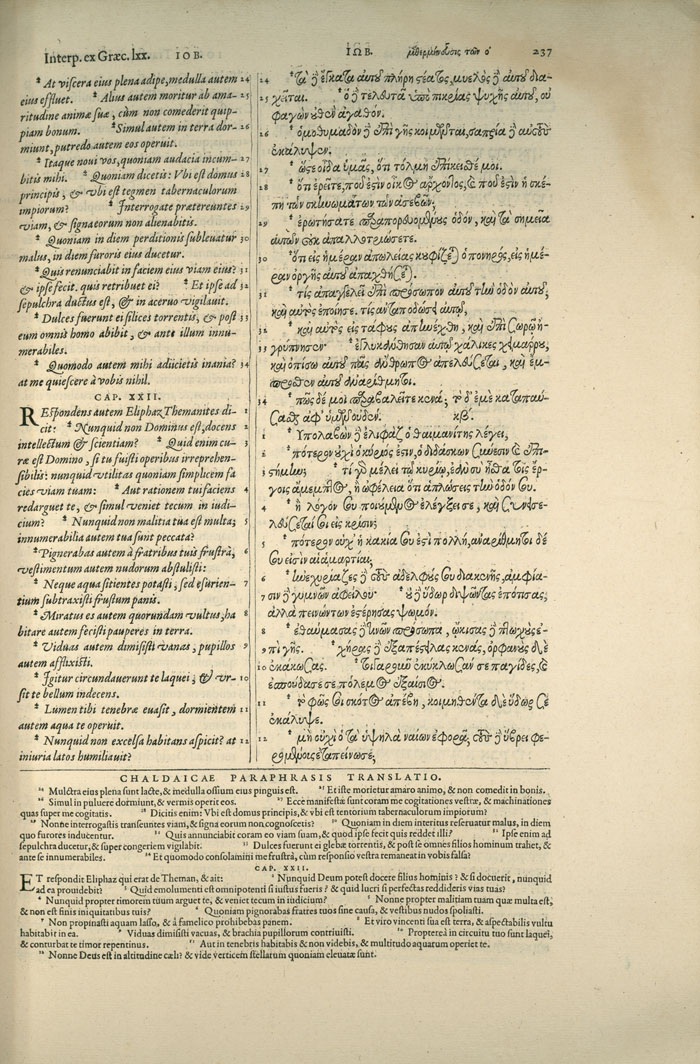 Interp. ex Græc. lxx. IOB.
* At viscera eius plena adipe, medulla autem 24
eius effluet. * Alius autem moritur ab ama- 25
ritudine animæ suæ, cùm non comederit quip-
piam bonum. * Simul autem in terra dor- 26
miunt, putredo autem eos operuit.
* Itaque noui vos, quoniam audacia incum- 27
bitis mihi. * Quoniam dicetis: Vbi est domus 28
principis, & vbi est tegmen tabernaculorum
impiorum? * Interrogate prætereuntes 29
viam, & signa eorum non alienabitis.
* Quoniam in diem perditionis subleuatur 30
malus, in diem furoris eius ducetur.
* Quis renunciabit in faciem eius viam eius? 31
& ipse fecit. quis retribuet ei? * Et ipse ad 32
sepulchra ductus est, & in aceruo vigilauit.
* Dulces fuerunt ei silices torrentis, & post 33
eum omnis homo abibit, & ante illum innu-
merabiles.
* Quomodo autem mihi adiicietis inania? 34
at me quiescere à vobis nihil.
CAP. XXII.
REspondens autem Eliphaz Themanites di- 1
cit: * Nunquid non Dominus est, docens 2
intellectum & scientiam? * Quid enim cu- 3
ræ est Domino, si tu fuisti operibus irreprehen-
sibilis: nunquid vtilitas quoniam simplicem fa
cies viam tuam: * Aut rationem tui faciens 4
redarguet te, & simul veniet tecum in iudi-
cium? * Nunquid non malitia tua est multa; 5
innumerabilia autem tua sunt peccata?
* Pignerabas autem à fratribus tuis frustrà, 6
vestimentum autem nudorum abstulisti:
* Neque aqua sitientes potasti, sed esurien- 7
tium subtraxisti frustum panis.
* Miratus es autem quorundam vultus, ha 8
bitare autem fecisti pauperes in terra.
* Viduas autem dimisisti vanas, pupillos 9
autem afflixisti.
* Igitur circundauerunt te laquei; & vr- 10
sit te bellum indecens.
* Lumen tibi tenebræ euasit, dormientem 11
autem aqua te operuit.
* Nunquid non excelsa habitans aspicit? at 12
iniuria latos humiliauit?
ΙΩΒ. μεθερμηνεύσις τῶν ο΄ 237
24 * Τὰ δὲ ἔγκατα αὐτοῦ πλήρη στέατος, μυελὸς δὲ αὐτοῦ δια-
25 χεῖται. * ὁ δὲ τελευτᾷ ὑπὸ πικρίας ψυχῆς αὐτοῦ, οὐ
φαγὼν οὐθὲν ἀγαθόν.
26 * ὁμοθυμαδὸν δὲ ἐπὶ γῆς κοιμῶνται, σαπρία δὲ αὐτοὺς
ἐκάλυψεν.
27 * ὥστε οἶδα ὑμᾶς, ὅτι τόλμῃ ἐπίκεισθέ μοι.
28 * ὅτι ἐρεῖτε, ποῦ ἐστιν οἶκος ἄρχοντος, καὶ ποῦ ἐστιν ἡ σκέ-
πη τῶν σκηνωμάτων τῶν ἀσεβῶν;
29 * ἐρωτήσατε παραπορευομένους ὁδὸν, καὶ τὰ σημεῖα
αὐτῶν οὐκ ἀπαλλοτριώσετε.
30 * ὅτι εἰς ἡμέραν ἀπωλείας κουφίζεται ὁ πονηρὸς, εἰς ἡμέ-
ραν ὀργῆς αὐτοῦ ἀπαχθήσεται.
31 * τίς ἀπαγγελεῖ ἐπὶ πρόσωπον αὐτοῦ τὴν ὁδὸν αὐτοῦ;
καὶ αὐτὸς ἐποίησε. τίς ἀνταποδώσει αὐτῷ;
32 * καὶ αὐτὸς εἰς τάφους ἀπηνέχθη, καὶ ἐπὶ σωρῷ ἠ-
33 γρύπνησεν * ἐγλυκάνθησαν αὐτῷ χάλικες χειμάρρου,
καὶ ὀπίσω αὐτοῦ πᾶς ἄνθρωπος ἀπελεύσεται, καὶ ἔμ-
προσθεν αὐτοῦ ἀναρίθμητοι.
34 * πῶς δέ μοι παραβαλεῖτε κενά; τὸ δ᾽ ἐμὲ καταπαύ-
σασθαι ἀφ᾽ ὑμῶν οὐδέν. κβ΄.
1 * Υπολαβὼν δὲ ἐλιφὰζ ὁ θαιμανίτης λέγει,
2 * πότερον οὐχὶ ὁ κύριός ἐστιν, ὁ διδάσκων σύνεσιν καὶ ἐπι-
3 στήμην; * τί γὰρ μέλει τῷ κυρίῳ, ἐὰν σὺ ἦσθα τοῖς ἔρ-
γοις ἄμεμπτος, ἢ ὠφέλεια ὅτι ἁπλώσεις τὴν ὁδόν σου.
4 * ἢ λόγον σου ποιούμενος ἐλέγξει σε, καὶ συνεισε-
λεύσεταί σοι εἰς κρίσιν;
5 * πότερον οὐχ᾽ ἡ κακία σου ἐστὶ πολλή, ἀναρίθμητοι δέ
σου εἰσὶν αἱ ἁμαρτίαι;
6 * ἠνεχύραζες δὲ τοὺς ἀδελφούς σου διακενῆς, ἀμφία-
7 σιν δὲ γυμνῶν ἀφείλου * οὐδὲ ὕδωρ διψῶντας ἐπότισας,
ἀλλὰ πεινώντων ἐστέρησας ψωμόν.
8 * ἐθαύμασας δέ τινων πρόσωπα, ᾤκισας δὲ πτωχοὺς ἐ-
9 πὶ γῆς. * χήρας δὲ ἐξαπέστειλας κενὰς, ὀρφανοὺς δὲ
10 ἐκάκωσας. * τοιγαροῦν ἐκύκλωσάν σε παγίδες, καὶ
ἐσπούδασέ σε πόλεμος ἐξαίσιος.
11 * τὸ φῶς σοι σκότος ἀπέβη, κοιμηθέντα δὲ ὕδωρ σε
ἐκάλυψε.
12 * μὴ οὐχὶ ὁ τὰ ὑψηλὰ ναίων ἐφορᾷ; τοὺς δὲ ὕβρει φε-
ρομένους ἐταπείνωσε;
CHALDAICAE PARAPHRASIS TRANSLATIO.
24 Mulctra eius plena sunt lacte, & medulla ossium eius pinguis est. 25 Et iste morietur amaro animo, & non comedit in bonis.
26 Simul in puluere dormiunt, & vermis operit eos. 27 Ecce manifestæ sunt coram me cogitationes vestræ, & machinationes
quas super me cogitatis. 28 Dicitis enim: Vbi est domus principis, & vbi est tentorium tabernaculorum impiorum?
29 Nonne interrogastis transeuntes viam, & signa eorum non cognoscetis? 30 Quoniam in diem interitus reseruatur malus, in diem
quo furores inducentur. 31 Quis annunciabit coram eo viam suam, & quod ipse fecit quis reddet illi? 32 Ipse enim ad
sepulchra ducetur, & super congeriem vigilabit. 33 Dulces fuerunt ei glebæ torrentis, & post se omnes filios hominum trahet, &
ante se innumerabiles. 34 Et quomodo consolamini me frustrà, cùm responsio vestra remaneat in vobis falsa?
CAP. XXII.
ET respondit Eliphaz qui erat de Theman, & ait: 2 Nunquid Deum potest docere filius hominis? & si docuerit, nunquid
ad ea prouidebit? 3 Quid emolumenti est omnipotenti si iustus fueris? & quid lucri si perfectas reddideris vias tuas?
4 Nunquid propter timorem tuum arguet te, & veniet tecum in iudicium? 5 Nonne propter malitiam tuam quæ multa est,
& non est finis iniquitatibus tuis? 6 Quoniam pignorabas fratres tuos sine causa, & vestibus nudos spoliasti.
7 Non propinasti aquam lasso, & à famelico prohibebas panem. 8 Et viro vincenti sua est terra, & aspectabilis vultu
habitabit in ea. 9 Viduas dimisisti vacuas, & brachia pupillorum contriuisti. 10 Proptereà in circuitu tuo sunt laquei,
& conturbat te timor repentinus. 11 Aut in tenebris habitabis & non videbis, & multitudo aquarum operiet te.
12 Nonne Deus est in altitudine cæli? & vide verticem stellarum quoniam eleuatæ sunt.